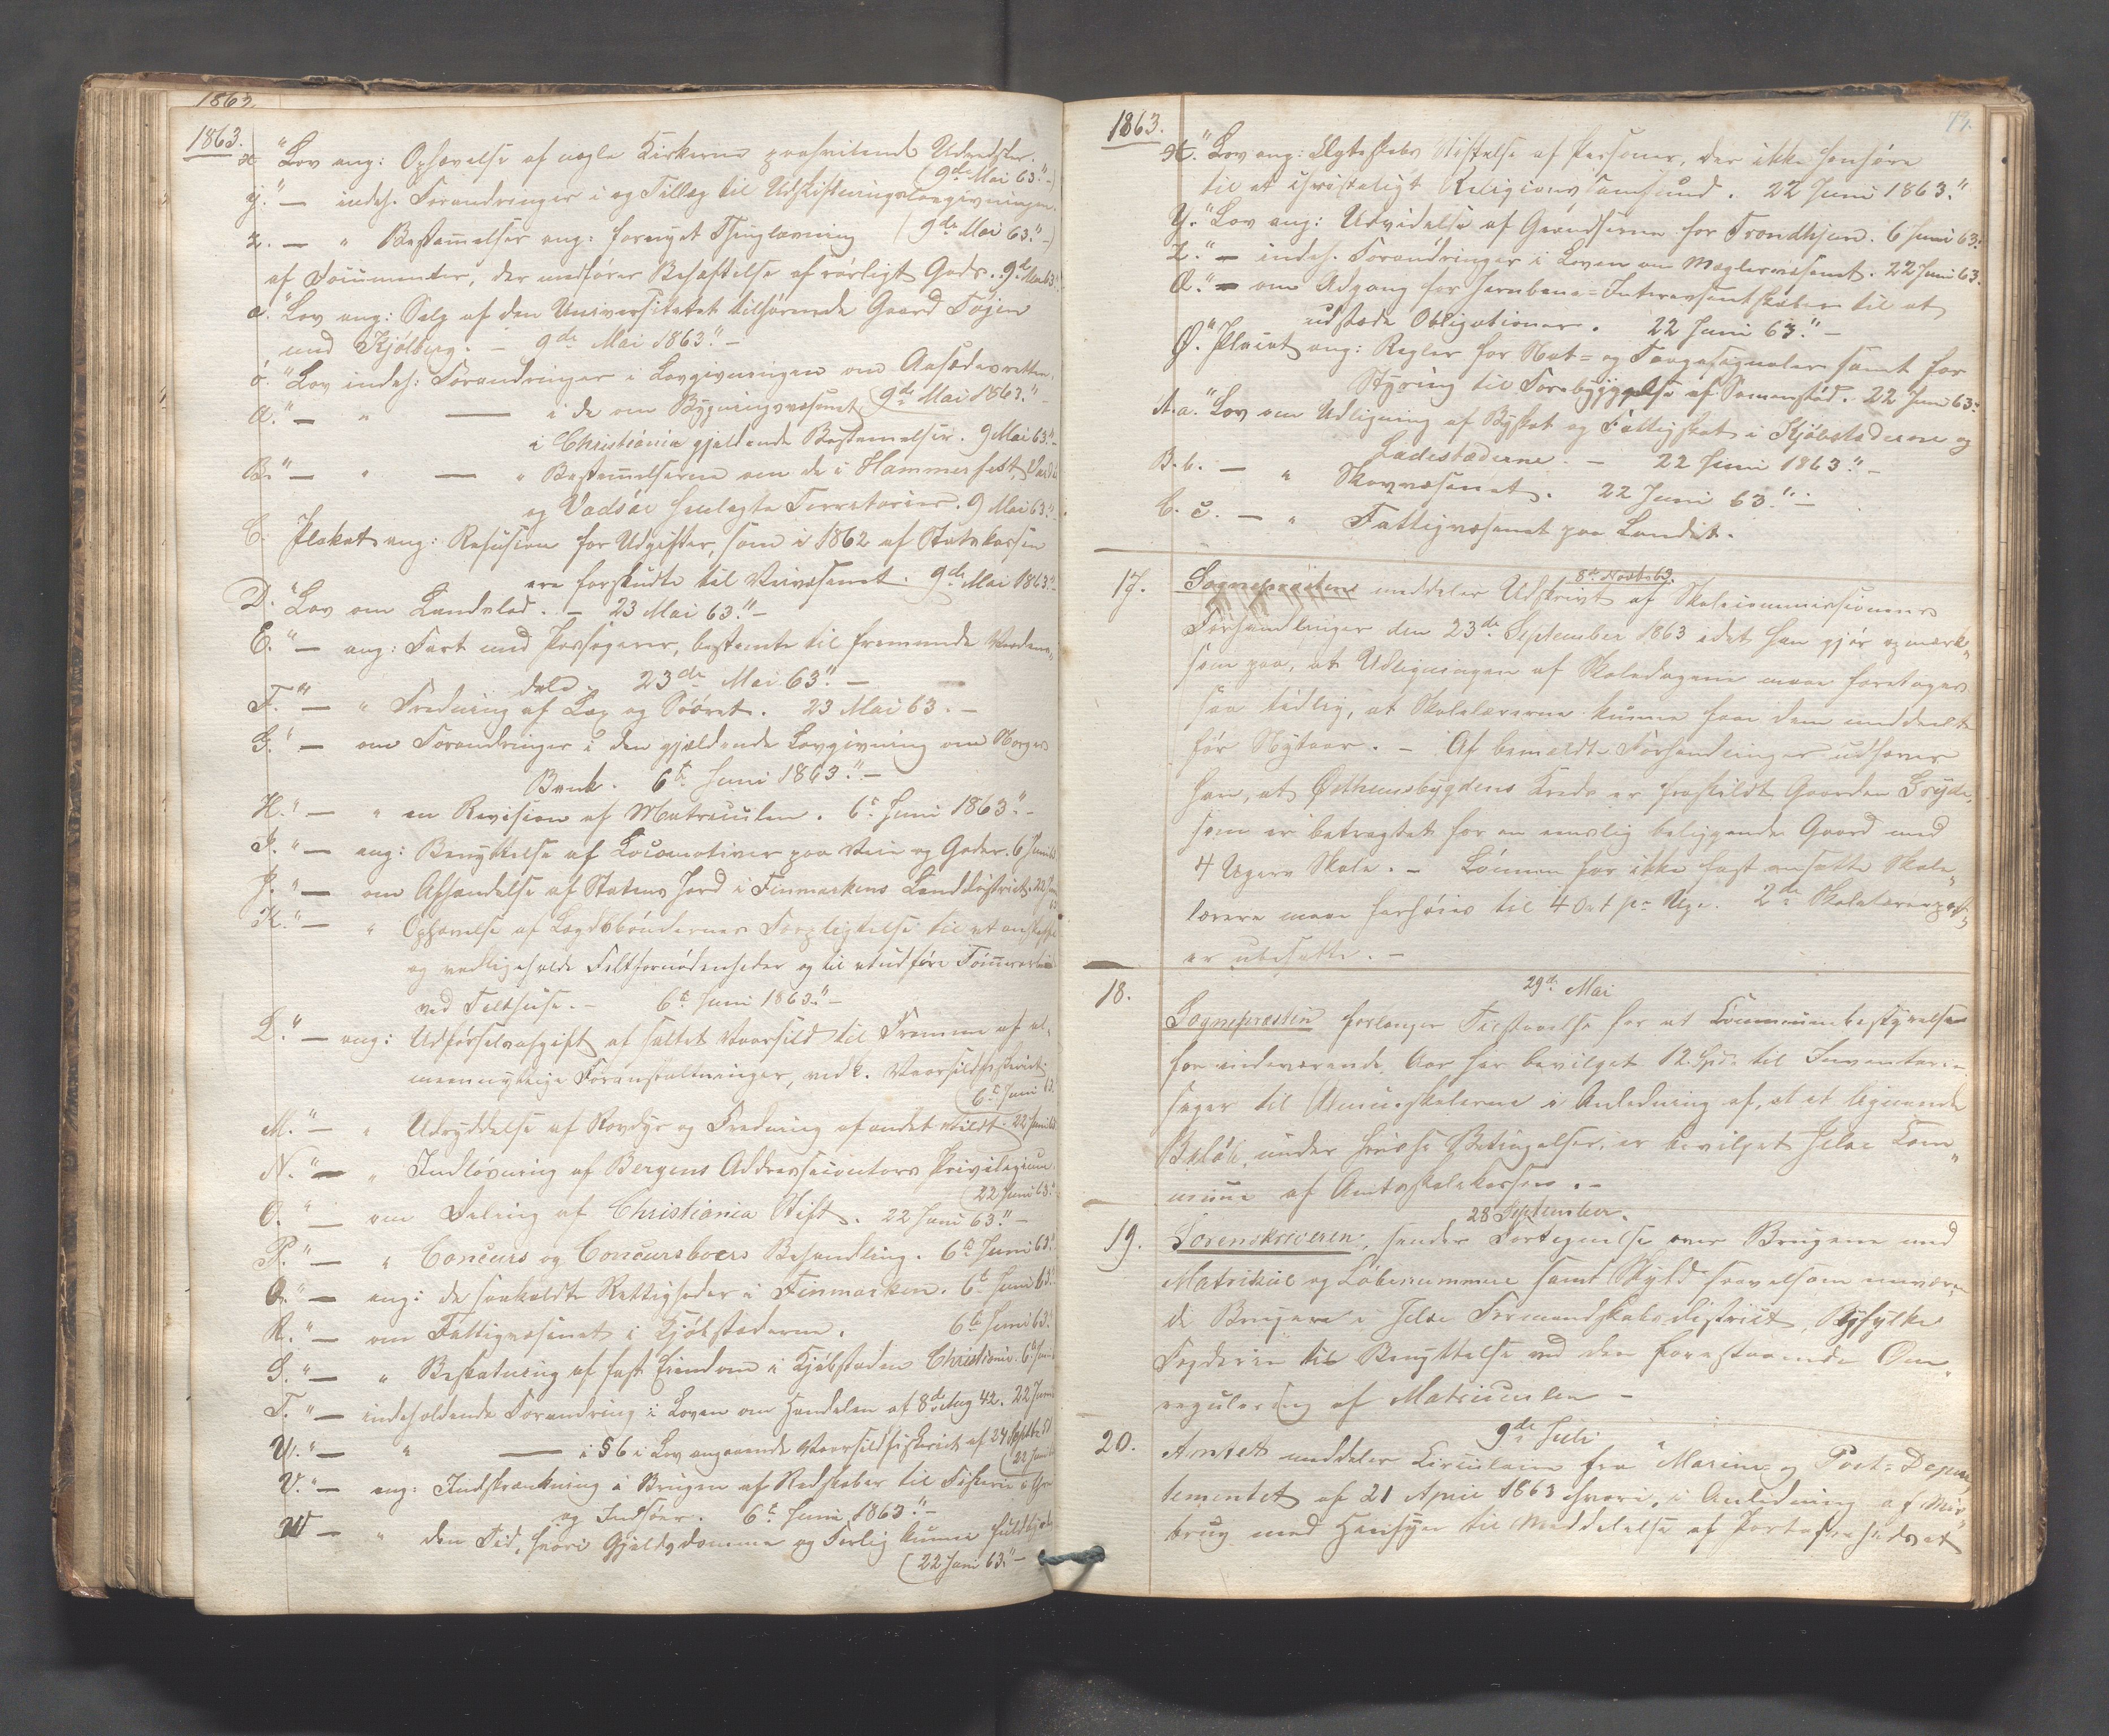 1863.
1863.
x. "Lov ang: Ophævelse af nogle Kirkerne paahvilende Udredsler.
(9de Mai 63."-)
y." — indeh. Forandringer i og Tillæg til Udskiftningslovgivningen.
z. — " Bestemmelser ang: fornyet Thinglæsning (9de Mai 63."-)
af Documenter, der medfører Behæftelse af rørligt Gods. 9de Mai 63."
æ. "Lov ang: Salg af den Universitetet tilhørende Gaard Tøien
med Kjølberg. — 9de Mai 1863."-
ø. "Lov indeh: Forandringer i Lovgivningen om Aasædesretten.
A." — " — i de om Bygningsvæsenet (9de Mai 1863."-
i Christiania gjældende Bestemmelser. 9 Mai 63."-
B." — " — " Bestemmelserne om de i Hammerfest, Vardø
og Vadsøe henlagte Territorier. 9 Mai 63."
C. Plakat ang: Refusion for Udgifter, som i 1862 af Statskassen
ere forskudte til Veivæsenet. 9de Mai 1863."-
D. "Lov om Landslod. — 23 Mai 63."-
E." — ang: Fart med Passagerer, bestemte til fremmede Verdens-
dele. 23de Mai 63."-
F." — " Fredning af Lax og Søørret. 23 Mai 63. -
G." — om Forandringer i den gjældende Lovgivning om Norges
Bank. 6te Juni 1863."-
H." — " en Revision af Matriculen. 6te Juni 1863."-
I." — ang: Benyttelse af Locomotiver paa Veie og Gader. 6 Juni 63
J." — om Afhændelse af Statens Jord i Finmarkens Landdistrict. 22 Juni
63
K." — " Ophævelse af Lægdsbøndernes Forpligtelse til at anskaffe
og vedligeholde Feltfornødenheder og til at udføre Tømmerarbeide
ved Telthuse. — 6te Juni 1863."-
L." — ang: Udførselsafgift af saltet Vaarsild til Fremme af al-
meennyttige Foranstaltninger, vedk. Vaarsildfiskeriet.
(6te Juni 63.
M." — " Udryddelse af Rovdyr og Fredning af andet Vildt. 22 Juni 63
N." — " Indløsning af Bergens Addressecontors Privilegium.
(22 Juni 63."
O. " — om Deling af Christiania Stift. 22 Juni 63."-
P." — " Concurs og Concursboers Behandling. 6te Juni 63."
Q." — ang: de saakaldte Rettigheder i Finmarken. 6te Juni 63."
R." — om Fattigvæsenet i Kjøbstæderne. 6te Juni 63."
S." — " Beskatning af fast Eiendom i Kjøbstaden Christiania. 6te Juni
T." — indeholdende Forandring i Loven om Handelen af 8de Aug 42. 22 Juni
U." — " — i § 6 i Lov angaaende Vaarsildfiskeriet af 24 Septbr 51
(22 Juni 63
V." — ang: Indskrænkning i Brugen af Redskaber til Fiskeri i Elve
og Indsøer. 6te Juni 1863."-
W — " den Tid, hvori Gjeldsdomme og Forlig kunne fuldbyrdes
(22 Juni 63."-
1863.
13.
X. "Lov ang: Ægteskabs Stiftelse af Personer, der ikke henhøre
til et christeligt Religionssamfund. 22 Juni 1863."
Y. "Lov ang: Udvidelse af Grændserne for Trondhjem. 6 Juni 63."
Z." — indeh. Forandringer i Loven om Mæglervæsenet. 22 Juni 63.
Æ." — om Adgang for Jernbane-Interessentskaber til at
udstæde Obligationer. 22 Juni 63."-
Ø." Placat ang: Regler for Nat- og Taagesignaler samt for
Styring til Forebyggelse af Sammenstød. 22 Juni 63."
A.a. "Lov om Udligning af Byskat og Fattigskat i Kjøbstæderne og
Ladestæderne. — 22 Juni 1863."-
B.b. — " Skovvæsenet. 22 Juni 63."-
C.c. — " Fattigvæsenet paa Landet.
8de Novbr 63.
17. Sognepræsten meddeler Udskrivt af Skolecommissionens
Forhandlinger den 23de September 1863 idet han gjør opmærk-
som paa, at Udligningen af Skoledagene maae foretages
saa tidlig, at Skolelærerne kunne faae dem meddeelt
før Nytaar. — Af bemeldte Forhandlinger udhæves
her, at Østhunsbygdens Kreds er fraskildt Gaarden Gryde,
som er betragtet for en enslig beliggende Gaard med
4 Ugers Skole. — Lønnen for ikke fast ansatte Skole-
lærere maae forhøies til 4 Ort pr Uge. 2de Skolelærerposter
er ubesatte. —
29de Mai
18. Sognepræsten forlanger Tilstaaelse for at Communebestyrelsen
for indeværende Aar har bevilget 12 Spd. til Inventarie-
sager til Almueskolerne i Anledning af, at et lignende
Beløb, under Betingelser, er bevilget Jelse Com-
mune af Amtsskolekassen. —
28 September.
19. Sorenskriveren, sender Fortegnelse over Brugene med
Matrikul og Løbenummere samt Skyld saavelsom nuværen-
de Brugere i Jelse Formandskabsdistrict, Ryfylke
Fogderie til Benyttelse ved den forestaaende Om-
regulering af Matriculen —
9de Juli
20. Amtet meddeler Circulaire fra Marine- og Post-Depar-
tementet af 21 April 1863 hvori, i Anledning af Mis-
brug med Hensyn til Meddelelse af Portofrihedsret